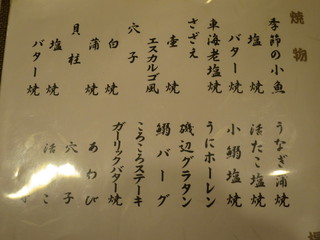 焼物
季節の小魚
塩焼
バター焼
車海老塩焼
さざえ
壺焼
エスカルゴ風
穴子
白焼
蒲焼
貝柱
塩焼
バター焼
うなぎ蒲焼
活たこ塩焼
小鰯塩焼
うにホーレン
磯辺グラタン
鰯バーグ
ころころステーキ
ガーリックバター焼
あわび
穴子